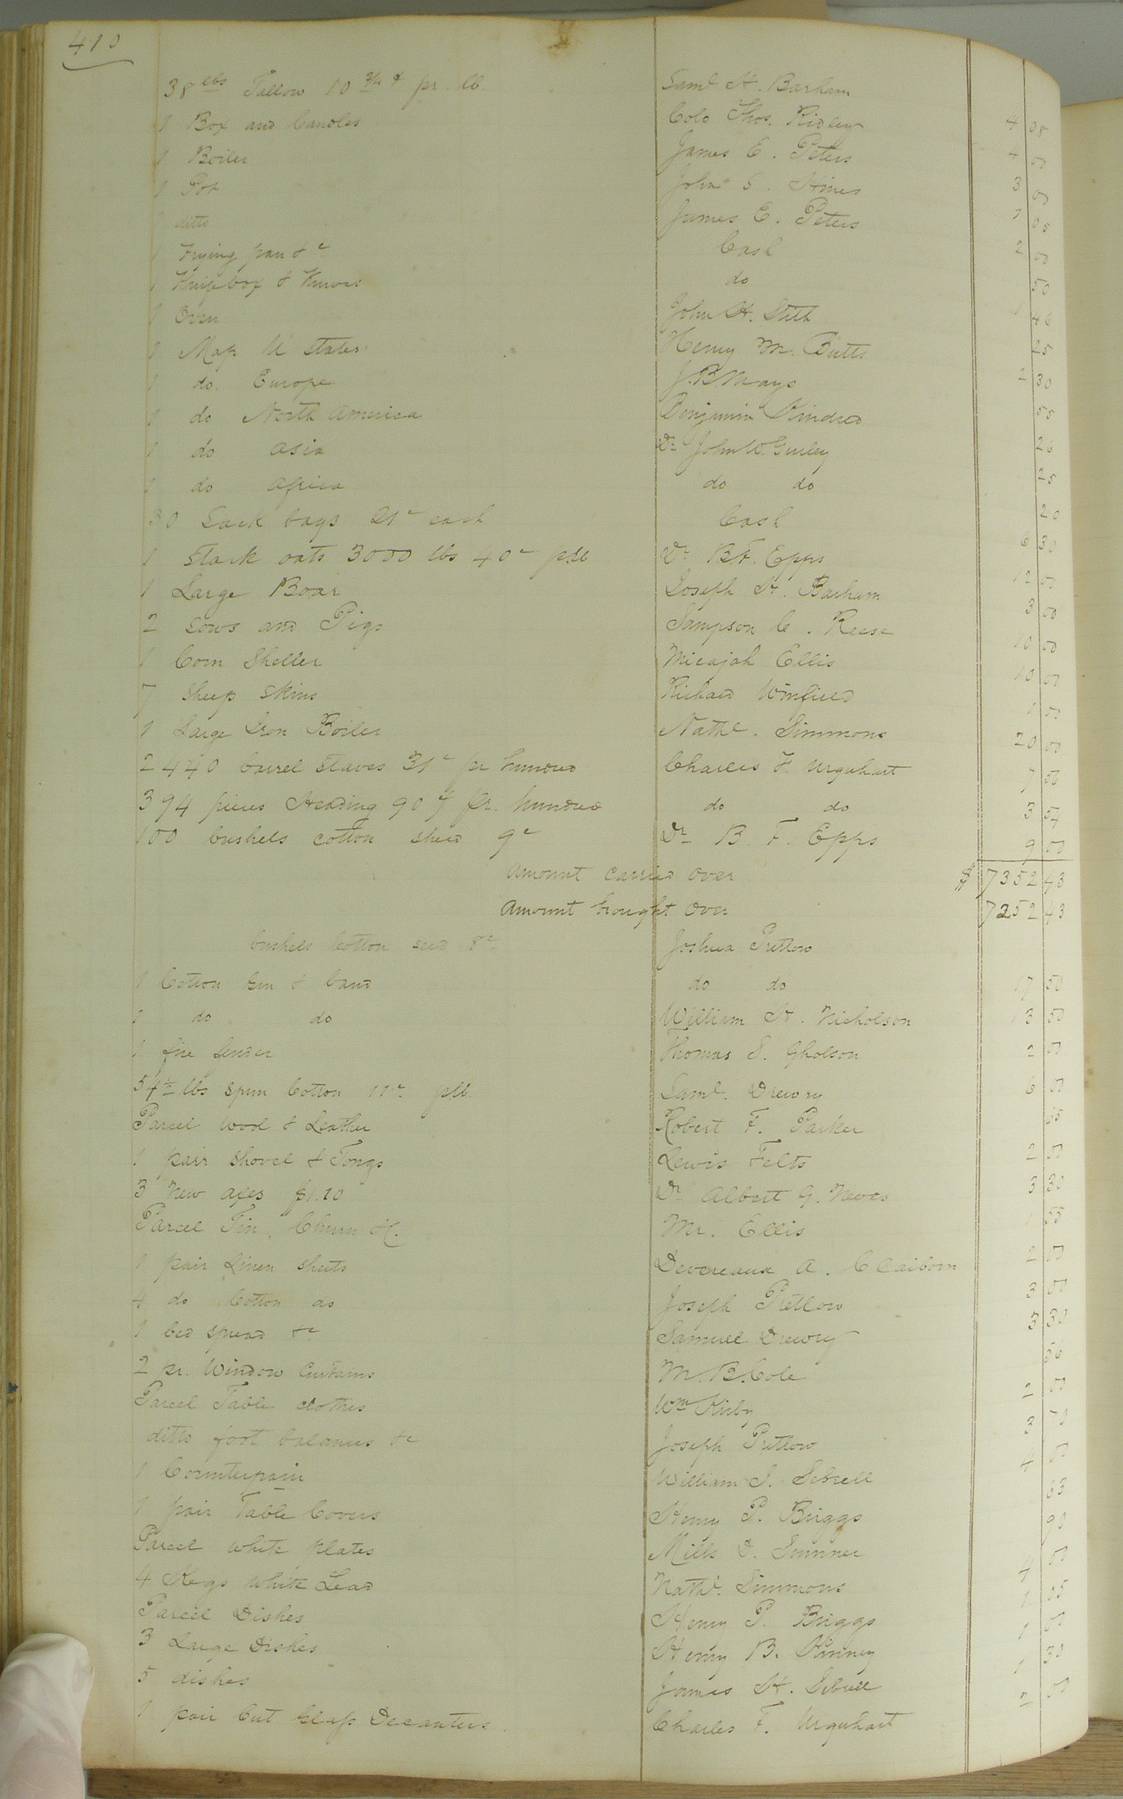 410
38 lbs Tallow 10 3/4 ¢ pr. lb. Saml H. Barham 4 08
1 Box and Candles Colo Thos. Ridley 4 00
1 Boiler James E. Peters 3 00
1 Pot John S. Hines 1 05
1 ditto James E. Peters 2 00
1 Frying pan &c Cash 50
1 Knife box & Knives do
1 Oven John H. Stith 25
1 Map U States Henry M. Butts 2 30
1 do. Europe J. B. Mays 55
1 do North America Benjamin Kindred
1 do Asia Dr John W. Gurley 25
1 do Africa do do 20
30 Sack bags 21c each Cash 6 30
1 Stack oats 3000 lbs 40c plb Dr B. F. Epps 12 00
1 Large Boar Joseph H. Barham 3 00
2 Sows and Pigs Sampson C. Reese 10 00
1 Corn Sheller Micajah Ellis 10 00
7 Sheep Skins Richard Winfield 1 00
1 Large Iron Boiler Nathl. Simmons 20 00
2440 barrel Staves 31c pr hundred Charles F. Urquhart 7 50
394 pieces Heading 90 ¢ pr. hundred do do 3 54
100 bushels cotton seed 9c Dr B. F. Epps 9 00
Amount carried over $ 7352 43
Amount brought over 7252 43
bushels Cotton seed 8c Joshua Pretlow
1 Cotton Gin & band do do 17 50
1 do do William H. Nicholson 13 50
1 fire fender Thomas S. Gholson 2 00
54 1/2 lbs Spun Cotton 11c plb. Saml. Drewry 6 00
Parcel Wool & Leather Robert F. Parker
1 pair Shovel & Tongs Lewis Felts 2 00
3 New axes $1.10 Dr Albert G. Neves 3 30
Parcel Tin, Churn &c. Mr. Ellis
1 pair Linen Sheets Devereaux A. Claiborn 2 00
4 do Cotton do Joseph Pretlow 3 00
1 bed spread &c Samuel Drewry 3 30
2 pr. Window Curtains M. B. Cole
Parcel Table clothes Wm Kirby 2 00
ditto foot balances &c Joseph Pretlow 3
1 Counterpain William J. Sebrell 4 00
1 pair Table Covers Henry P. Briggs 63
Parcel White plates Mills D. Sumner 90
4 Kegs White Lead Nathl. Simmons 4 00
Parcel Dishes Henry P. Briggs 1 05
3 Large Dishes Henry B. 1 00
5 dishes James H. Sebrell 1 30
1 pair Cut Glass Decanters Charles F. Urquhart 2 00